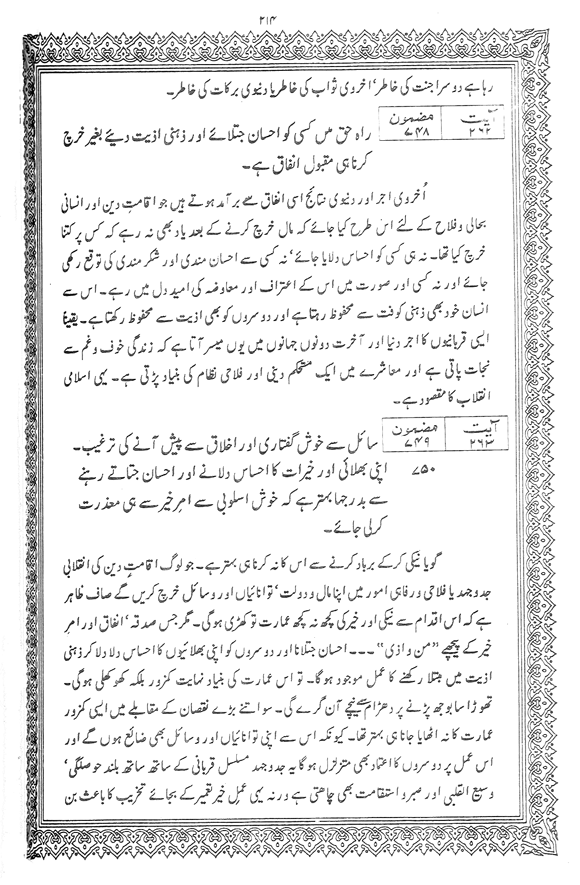 ۲۱۴
رہا ہے دوسرا جنت کی خاطر‘ اخروی ثواب کی خاطر یا دنیوی برکات کی خاطر۔
آیت ۲۶۲ مضمون ۷۴۸
راہ حق میں کسی کو احسان جتلائے اور ذہنی اذیت دیئے بغیر خرچ
کرنا ہی مقبول انفاق ہے۔
اُخروی اجر اور دنیوی نتائج اسی انفاق سے برآمد ہوتے ہیں جو اقامتِ دین اور انسانی
بحالی و فلاح کے لئے اس طرح کیا جائے کہ مال خرچ کرنے کے بعد یاد بھی نہ رہے کہ کس پر کتنا
خرچ کیا تھا۔ نہ ہی کسی کو احساس دلایا جائے‘ نہ کسی سے احسان مندی اور شکر مندی کی توقع رکھی
جائے اور نہ کسی اور صورت میں اس کے اعتراف اور معاوضہ کی امید دل میں رہے۔ اس سے
انسان خود بھی ذہنی کوفت سے محفوظ رہتا ہے اور دوسروں کو بھی اذیت سے محفوظ رکھتا ہے۔ یقیناً
ایسی قربانیوں کا اجر دنیا اور آخرت دونوں جہانوں میں یوں میسر آتا ہے کہ زندگی خوف و غم سے
نجات پاتی ہے اور معاشرے میں ایک مستحکم دینی اور فلاحی نظام کی بنیاد پڑتی ہے۔ یہی اسلامی
انقلاب کا مقصود ہے۔
آیت ۲۶۳ مضمون ۷۴۹
سائل سے خوش گفتاری اور اخلاق سے پیش آنے کی ترغیب۔
۷۵۰ اپنی بھلائی اور خیرات کا احساس دلانے اور احسان جتاتے رہنے
سے بدرجہا بہتر ہے کہ خوش اسلوبی سے امرِ خیر سے ہی معذرت
کرلی جائے۔
گویا نیکی کرکے برباد کرنے سے اس کا نہ کرنا ہی بہتر ہے۔ جو لوگ اقامتِ دین کی انقلابی
جدوجہد یا فلاحی و رفاہی امور میں اپنا مال و دولت‘ توانائیاں اور وسائل خرچ کریں گے صاف ظاہر
ہے کہ اس اقدام سے نیکی اور خیر کی کچھ نہ کچھ عمارت تو کھڑی ہوگی۔ مگر جس صدقہ‘ انفاق اور امرِ
خیر کے پیچھے ”من و اذی“ ۔۔۔ احسان جتلانا اور دوسروں کو اپنی بھلائیوں کا احساس دلا دلا کر ذہنی
اذیت میں مبتلا رکھنے کا عمل موجود ہو گا۔ تو اس عمارت کی بنیاد نہایت کمزور بلکہ کھوکھلی ہوگی۔
تھوڑا سا بوجھ پڑنے پر دھڑام سے نیچے آن گرے گی۔ سو اتنے بڑے نقصان کے مقابلے میں ایسی کمزور
عمارت کا نہ اٹھایا جانا ہی بہتر تھا۔ کیونکہ اس سے اپنی توانائیاں اور وسائل بھی ضائع ہوں گے اور
اس عمل پر دوسروں کا اعتماد بھی متزلزل ہو گا یہ جدوجہد مسلسل قربانی کے ساتھ ساتھ بلند حوصلگی‘
وسیع القلبی اور صبر و استقامت بھی چاہتی ہے ورنہ یہی عملِ خیر تعمیر کے بجائے تخریب کا باعث بن